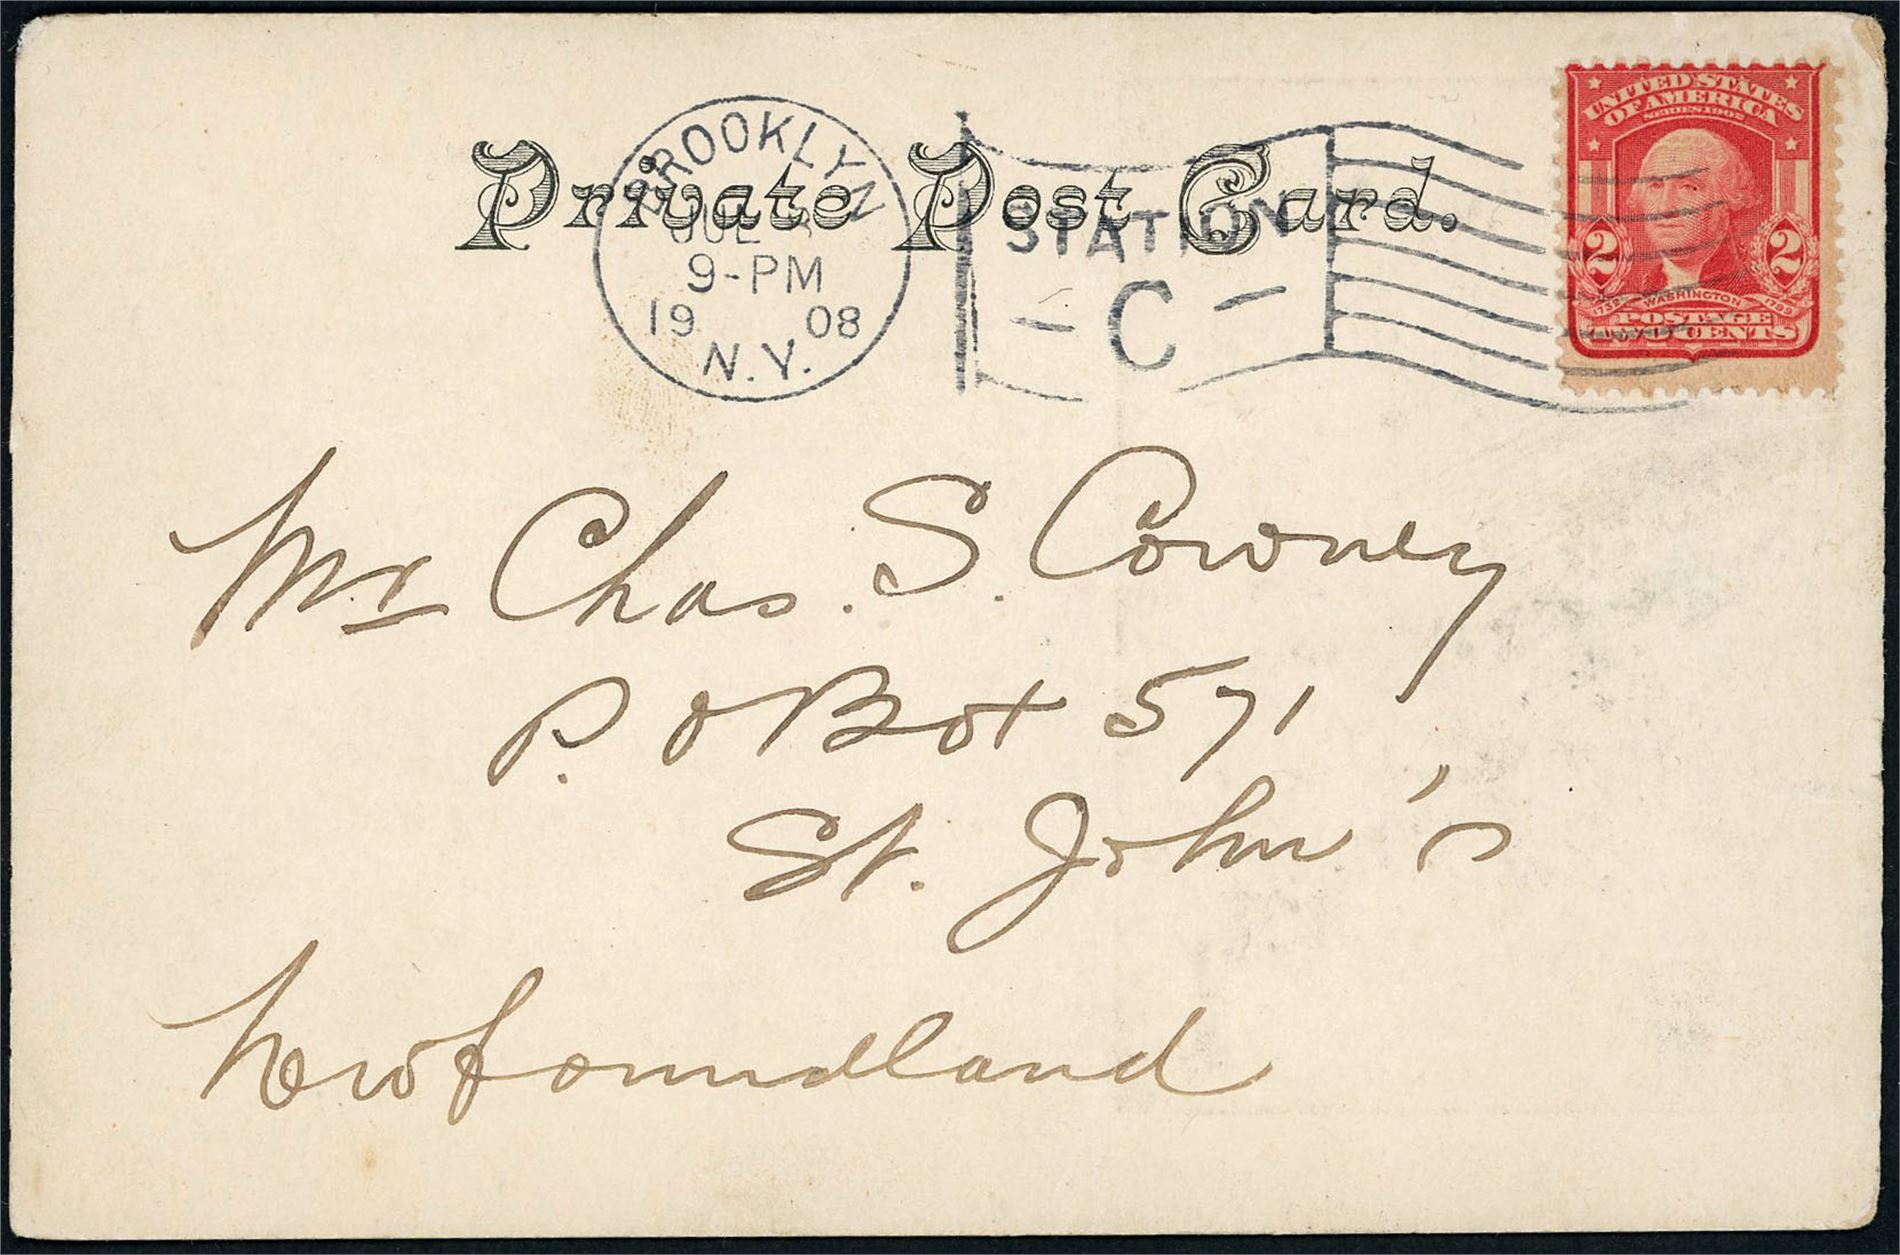 Private Post Card.
BROOKLYN
JUL
9-PM
19 08
N.Y.
STATION
- C -
UNITED STATES
OF AMERICA
SERIES 1902
2 2
1732 WASHINGTON 1799
POSTAGE
TWO CENTS
Mr Chas. S. Cowney
P. O Box 571
St. John's
Newfoundland